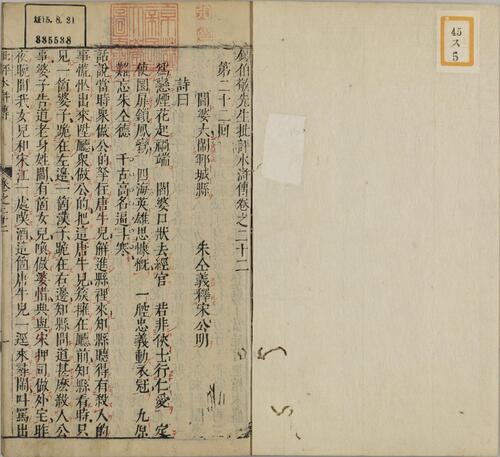 鍾伯敬先生批評水滸傳卷之二十二
第二十二回
閻婆大鬧鄆城縣　朱仝義釋宋公明
詩曰
為戀煙花起禍端　閻婆口狀去經官　若非俠士行仁愛　定
使圜扉鎖鳳鸞　四海英雄思慷慨　一腔忠義動衣冠　九原
難忘朱仝德　千古高名逼斗寒
話說當時眾做公的拏住唐牛兒解進縣裡來知縣聽得有殺人的
事慌忙出來陞廳眾做公的把這唐牛兒簇擁在廳前知縣看時只
見一箇婆子跪在左邊一箇漢子跪在右邊知縣問道甚麼殺人公
事婆子告道老身姓閻有箇女兒喚做婆惜典與宋押司做外宅昨
夜晚間我女兒和宋江一處喫酒這箇唐牛兒一逕來尋鬧叫罵出
批評水滸傳
卷之二十二
昭15.8.21
335538
45
ス
5